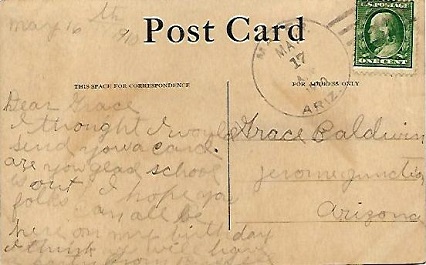 May 16th 1910
Post Card
MAY
17
ARIZ.
ONE CENT
THIS SPACE FOR CORRESPONDENCE
FOR ADDRESS ONLY
Dear Grace
I thought I would
send you a card.
are you glad school
is out I hope you
folks can all be
here on my birthday
I think I will have
Grace Baldwin
Jerome Junction
Arizona